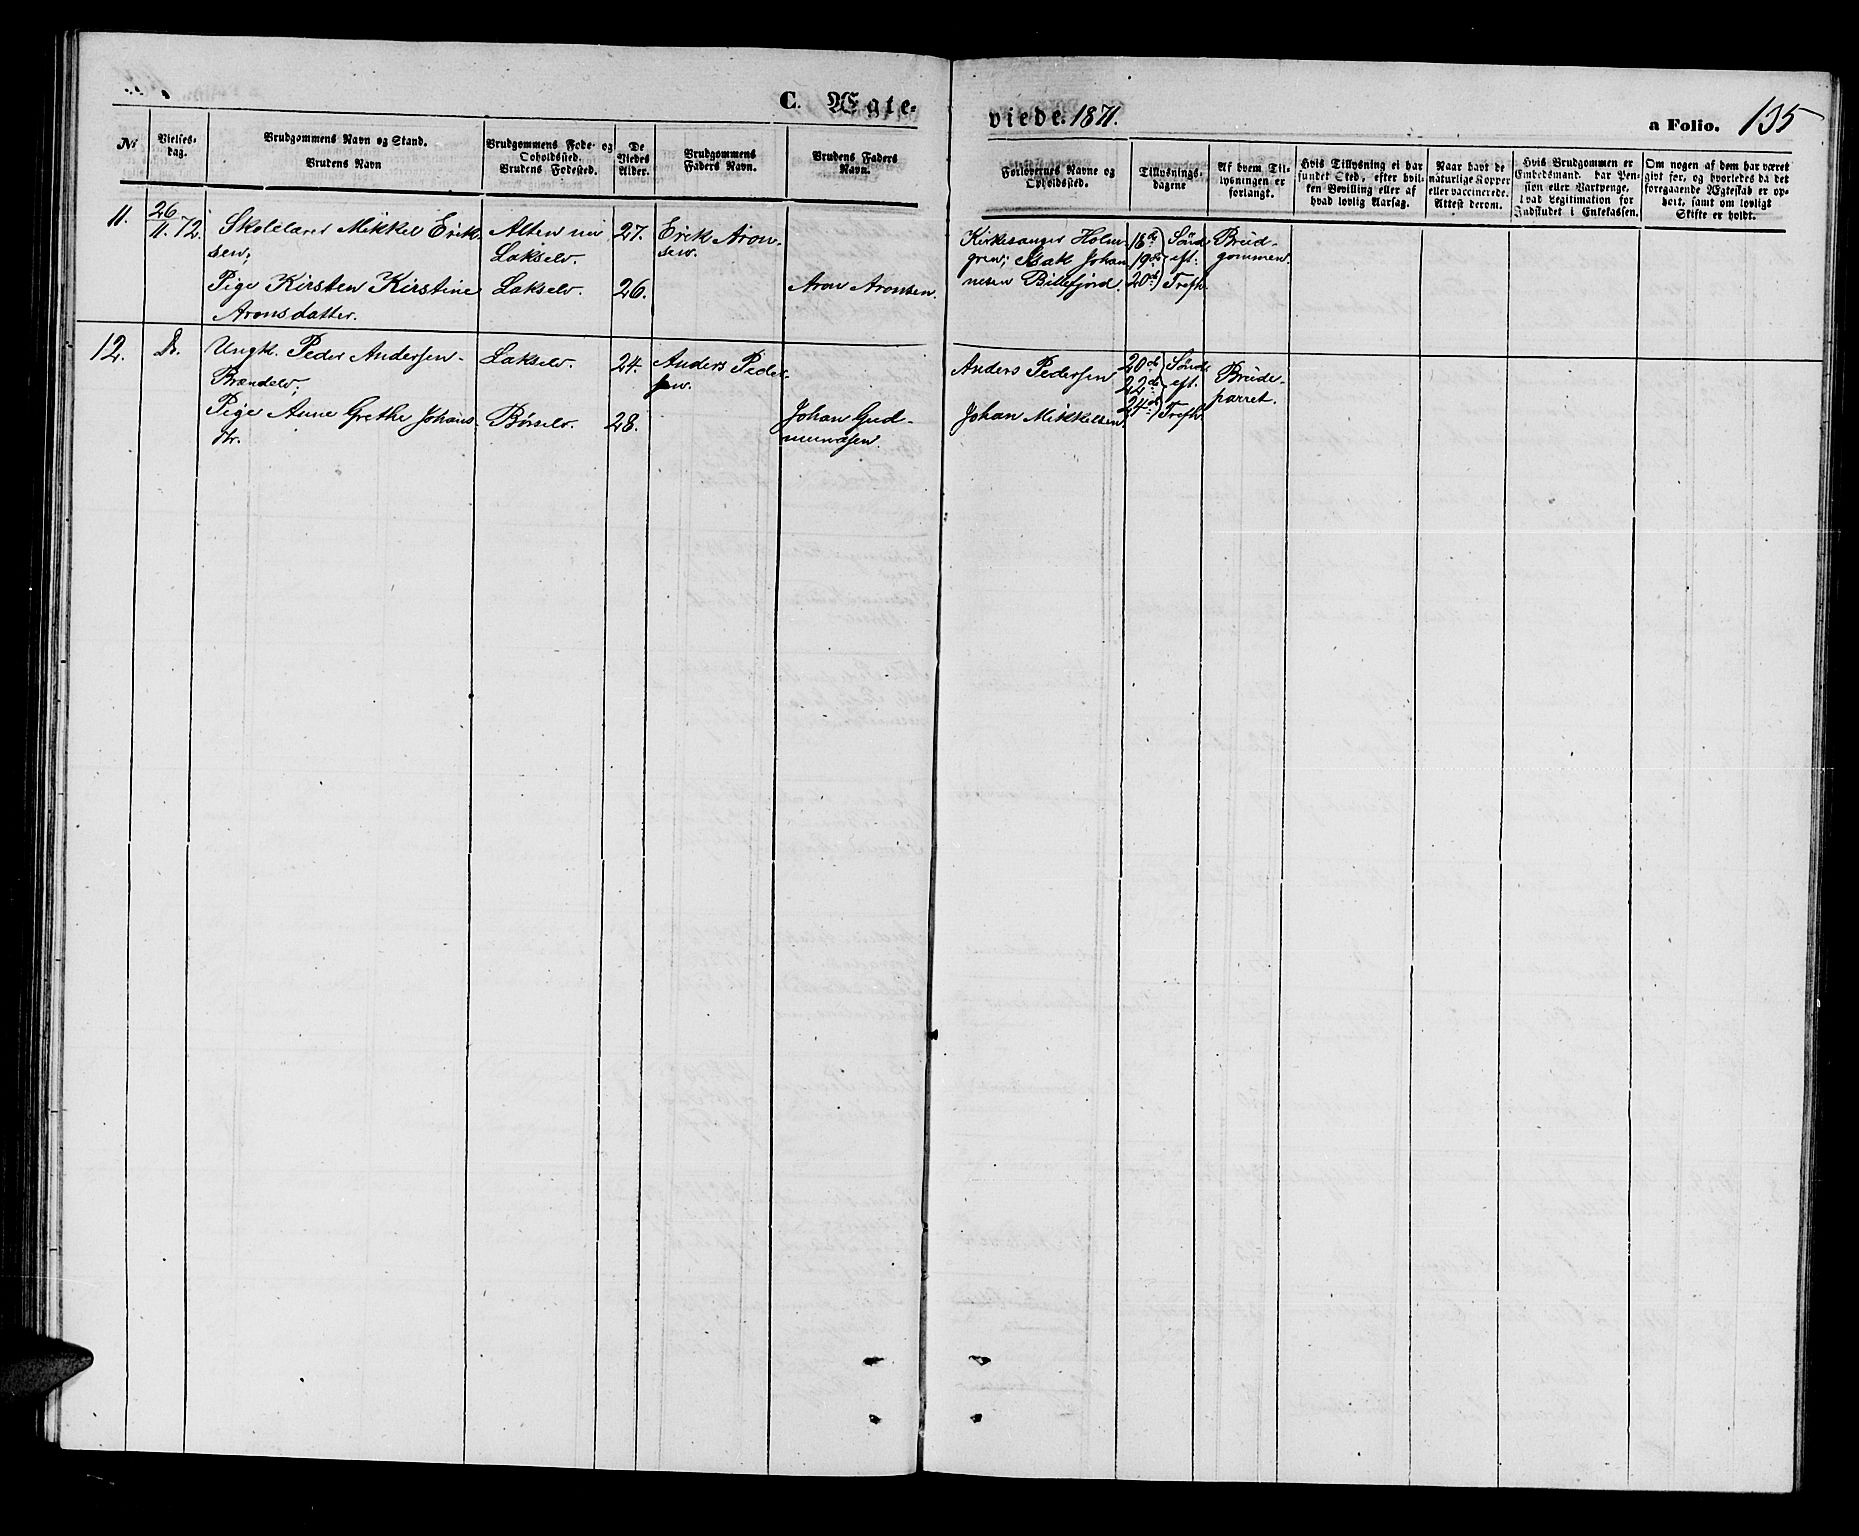 C. Ægte-
viede. 1871.
a Folio. 135
No
Vielses-
dag.
Brudgommens Navn og Stand.
Brudens Navn
Brudgommens Føde- og
Opholdssted.
Brudens Fødested.
De
Viedes
Alder.
Brudgommens
Faders Navn.
Brudens Faders
Navn.
Forlovernes Navne og
Opholdssted.
Tillysnings-
dagene
Af hvem Til-
lysningen er
forlangt.
Hvis Tillysning ei har
fundet Sted, efter hvil-
ken Bevilling eller af
hvad lovlig Aarsag.
Naar havt de
naturlige Kopper
eller vaccinerede.
Attest derom.
Hvis Brudgommen er
Embedsmand, har Pen-
sion eller Vartpenge,
hvad Legitimation for
Indskudet i Enkekassen.
Om nogen af dem har været
gift før, og hvorledes da det
foregaaende Ægteskab er op-
hørt, samt om lovligt
Skifte er holdt.
11.
26
11. 72.
Skolelærer Mikkel Erik-
sen;
Pige Kirsten Kirstine
Aronsdatter.
Alten nu
Lakselv.
Lakselv.
27.
26.
Erik Aron-
sen.
Aron Aronsen.
Kirkesanger Holm-
gren; Isak Johan-
nesen Billefjord.
18de Sönd.
19de eft.
20de Trefh.
Brud-
gommen.
12.
Do.
Ungk. Peder Andersen
Brændelv;
Pige Anne Grethe Johans-
dtr.
Lakselv.
Børselv.
24.
28.
Anders Peder-
sen.
Johan Gud-
mundsen.
Anders Pedersen
Johan Mikkelsen
20de Sönd.
22de eft.
24de Trefh.
Brude-
parret.